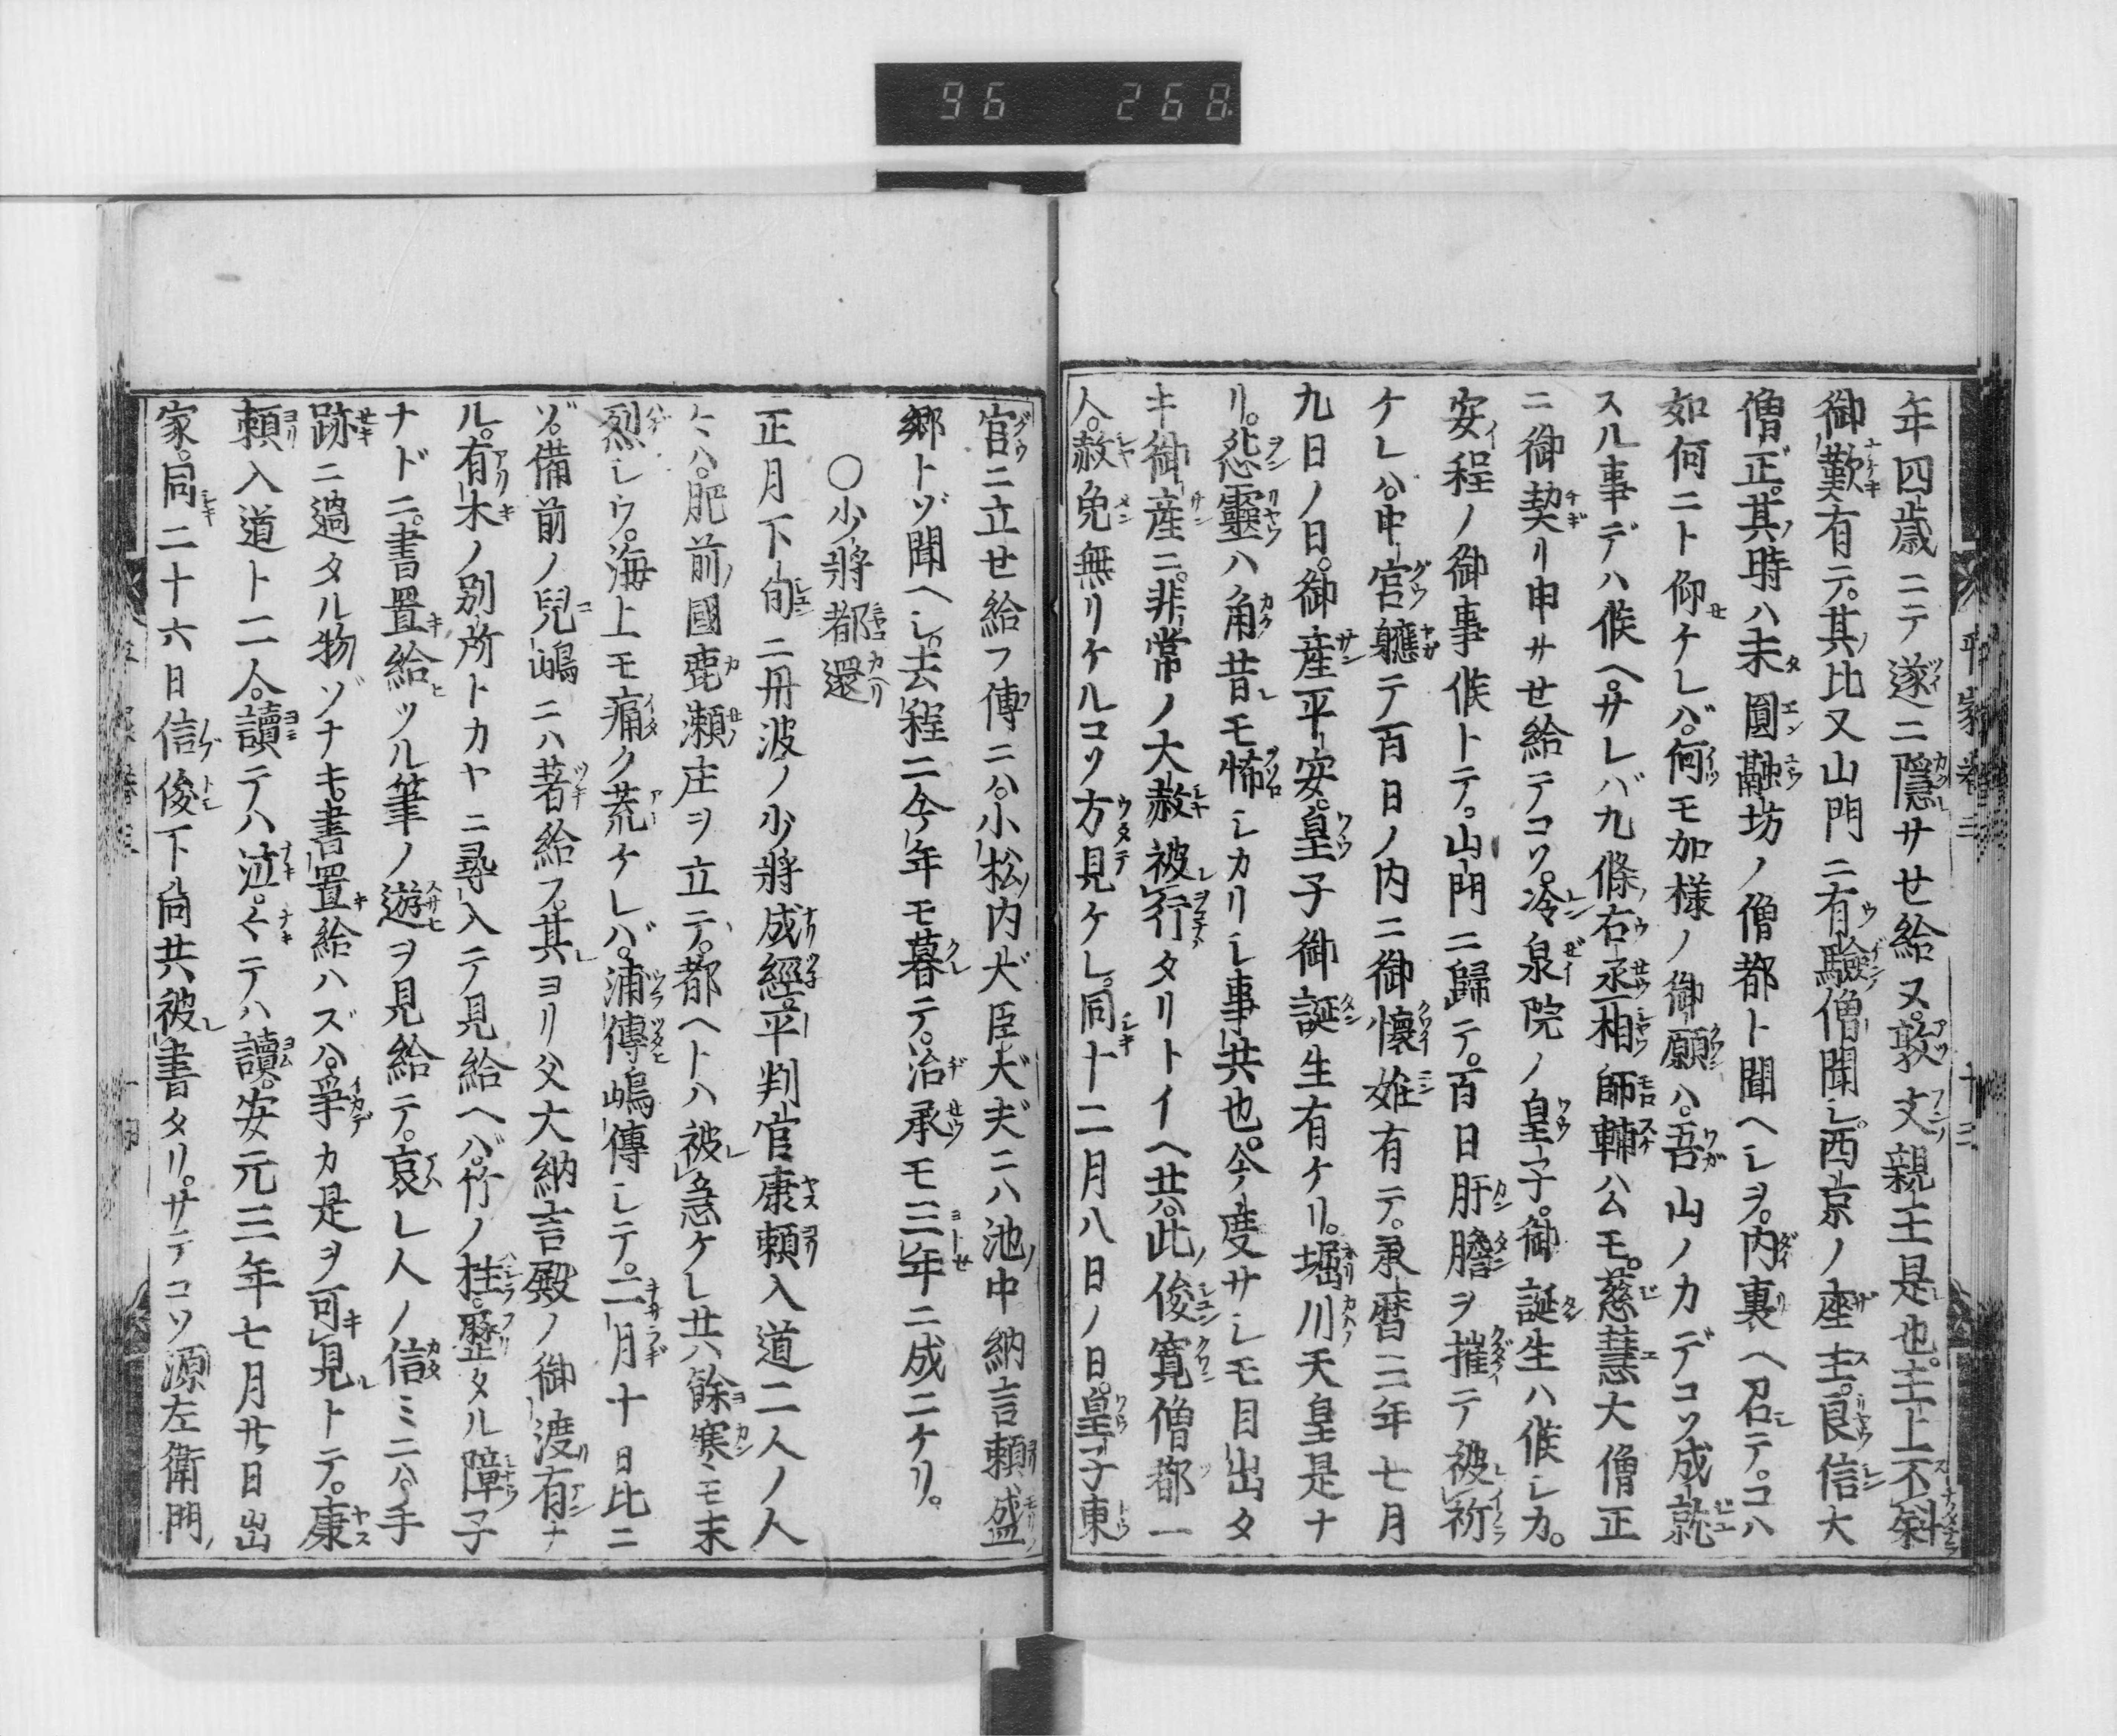 96 268
平家卷三 十三
年四歳ニテ遂ニ隱サせ給ヌ。敦文親王是也。主上不斜
御歎有テ。其比又山門ニ有驗僧聞ヘシ。西京ノ座主。良信大
僧正。其時ハ未圓融坊ノ僧都ト聞ヘシヲ。内裏ヘ召テ。コハ
如何ニト仰ケレバ。何モ加樣ノ御願ハ。吾山ノカデコソ成就
スル事デハ候ヘ。サレバ九條右丞相師輔公モ。慈慧大僧正
ニ御契リ申サせ給テコソ。冷泉院ノ皇子。御誕生ハ候シカ。
安程ノ御事候トテ。山門ニ歸テ。百日肝膽ヲ摧テ被祈
ケレハ。中官軈テ百日ノ内ニ御懷姙有テ。承暦三年七月
九日ノ日。御産平安。皇子御誕生有ケリ。堀川天皇是ナ
リ。怨靈ハ角昔モ怖シカリシ事共也。今度サシモ目出タ
キ御産ニ。非常ノ大赦被行タリトイヘ共。此俊寛僧都一
人。赦免無リケルコソ方見ケレ。同十二月八日ノ日。皇子東
官ニ立せ給フ傅ニハ。小松内大臣大夫ニハ池中納言頼盛
郷トゾ聞ヘシ。去程ニ今年モ暮テ。治承モ三年ニ成ニケリ。
〇少將都還
正月下旬ニ丹波ノ少將成經。平判官康頼入道二人ノ人
々ハ。肥前國鹿瀬庄ヲ立テ。都ヘトハ被急ケレ共。餘寒モ末
烈シウ。海上モ痛ク荒ケレバ。浦傳嶋傳シテ。二月十日比ニ
ゾ。備前ノ兒嶋ニハ著給フ。其ヨリ父大納言殿ノ御渡有ナ
ル。有木ノ別所トカヤニ尋入テ見給ヘバ。竹ノ柱歴タル障子
ナドニ。書置給ツル筆ノ遊ヲ見給テ。哀レ人ノ信ミニハ。手
跡ニ過タル物ゾナキ。書置給ハズハ。爭カ是ヲ可見トテ。康
頼入道ト二人。讀テハ泣。〱テハ讀。安元三年七月廿日出
家。同二十六日信俊下向共被書タリ。サテコソ源左衛門